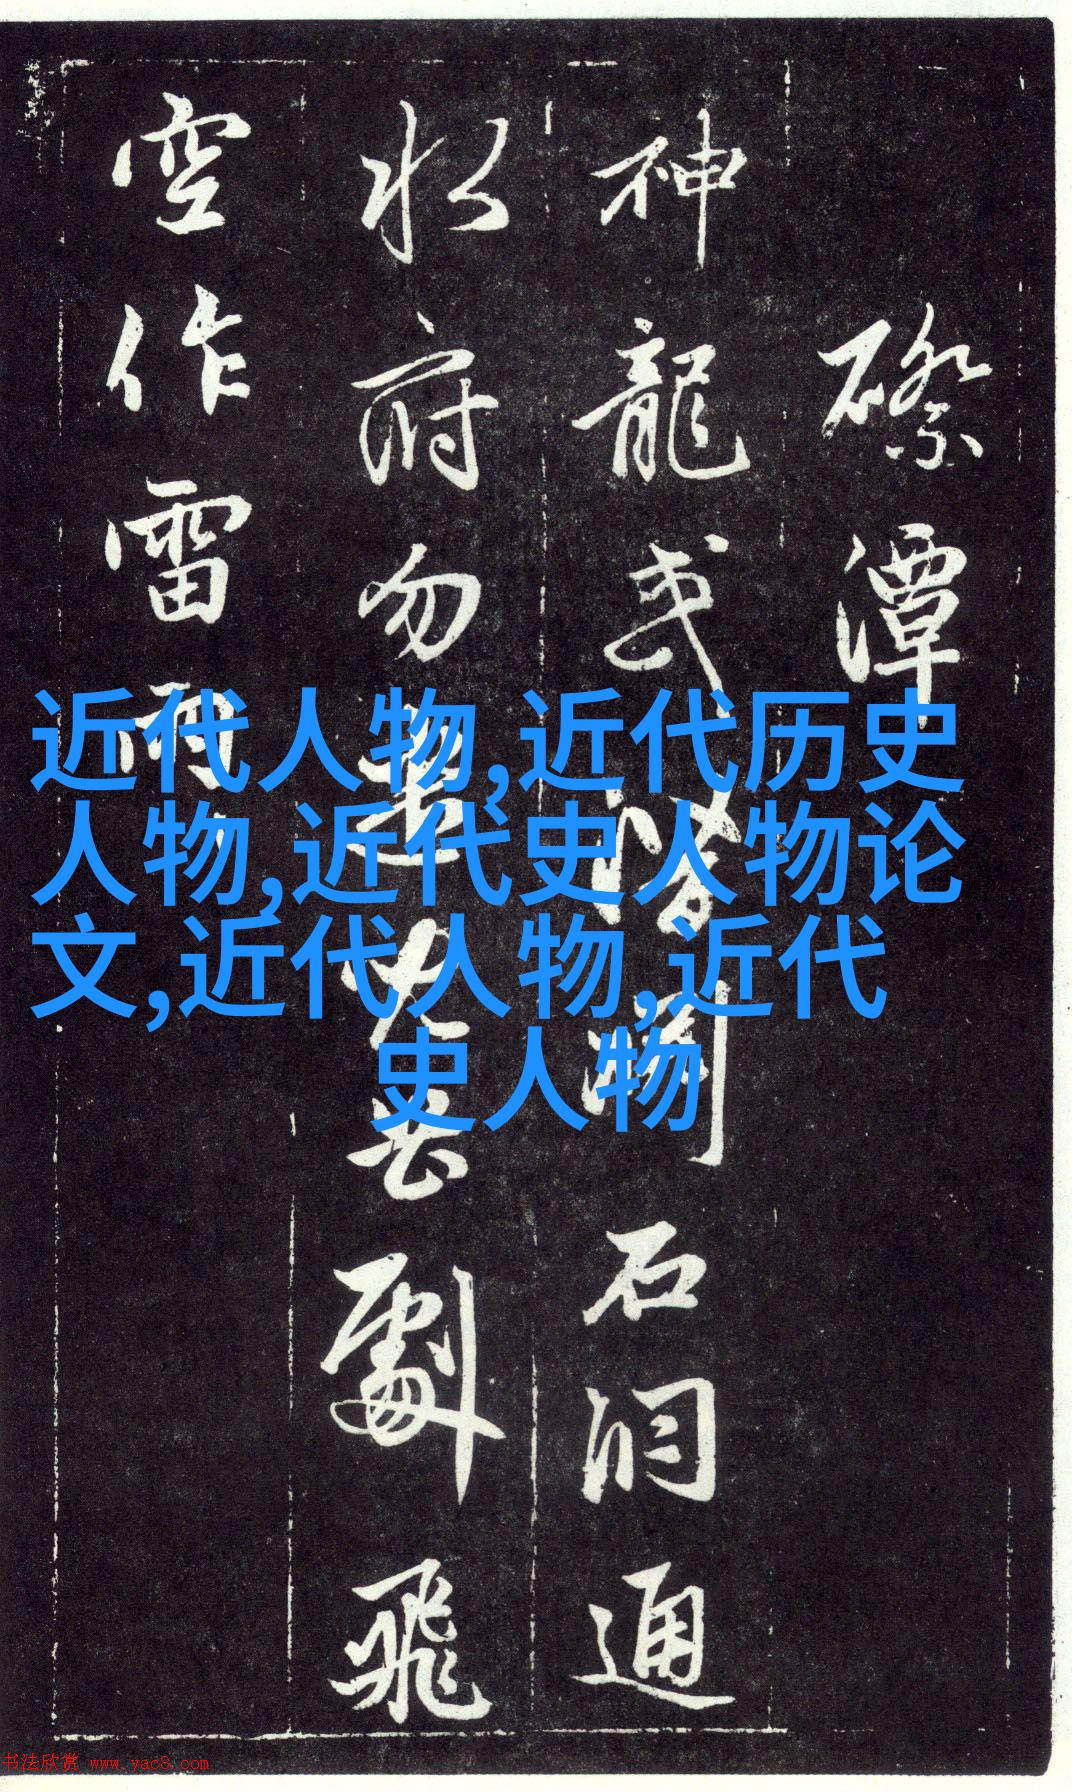 磜潭
神龍或潛石洞通
水府勿飛
空作雷雨
近代人物,近代历史
人物,近代史人物论
文,近代人物,近代
史人物
书法欣赏 www.yac8.com